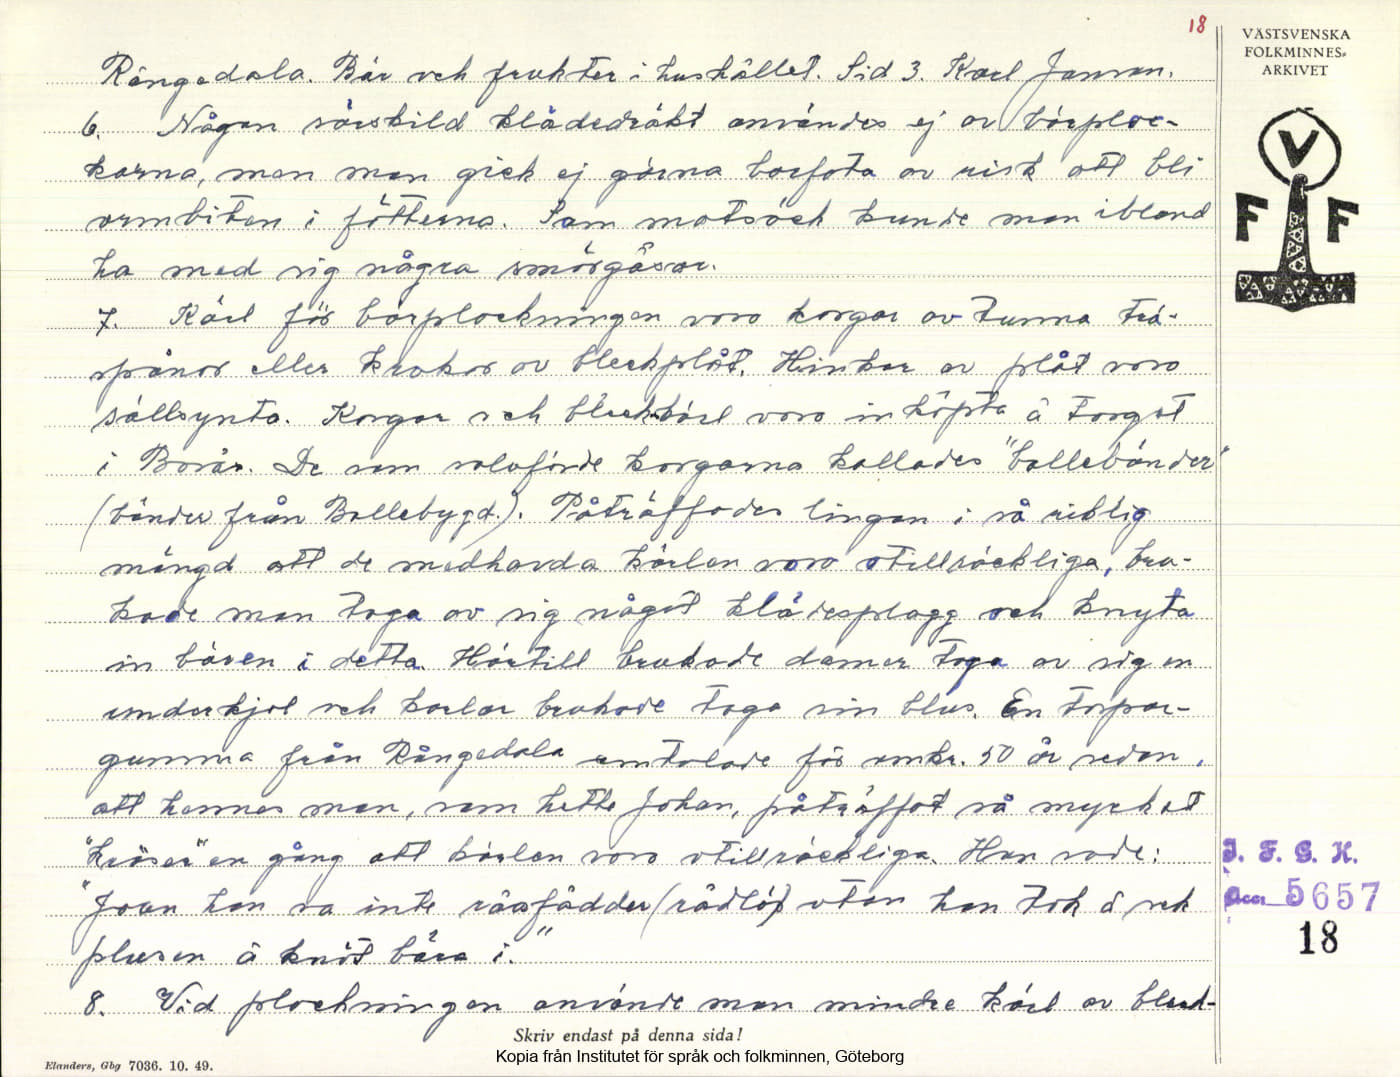 18
VÄSTSVENSKA
FOLKMINNES-
ARKIVET
V
F F
Rångedala. Bär och frukter i hushållet. Sid 3. Karl Jonson.
6. Någon särskild klädedräkt användes ej av bärploc-
karna, men man gick ej gärna barfota av risk att bli
ormbiten i fötterna. Som matsäck kunde man ibland
ha med sig några smörgåsar.
7. Kärl för bärplockningen voro korgar av tunna trä-
spånor eller krukor av bleckplåt. Hinkar av plåt voro
sällsynta. Korgar och bleckkärl voro inköpta å torget
i Borås. De som saluförde korgarna kallades "bollebönder"
(bönder från Bollebygd.). Påträffades lingon i så riklig
mängd att de medhavda kärlen voro otillräckliga, bru-
kade man taga av sig något klädesplagg och knyta
in bären i detta. Härtill brukade damer taga av sig en
underkjol och karlar brukade taga sin blus. En torpar-
gumma från Rångedala omtalade för omkr. 50 år sedan,
att hennes man, som hette Johan, påträffat så mycket
"kröser" en gång att kärlen voro otillräckliga. Hon sade:
"Joan han va inte råsfädder (rådlös) utan han tok å sek
plusen å knöt bära i."
8. Vid plockningen använde man mindre kärl av bleck-
Skriv endast på denna sida!
Kopia från Institutet för språk och folkminnen, Göteborg
Elanders, Gbg 7036. 10. 49.
I. F. G. H.
Acc. 5657
18